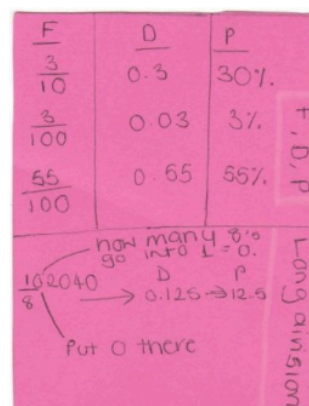 F D P
3/10 0.3 30%.
3/100 0.03 3%.
55/100 0.55 55%.
F, D, P
how many 8's
go into 1 = 0.
102040
8
D P
→ 0.125 → 12.5
Put 0 there
Long division